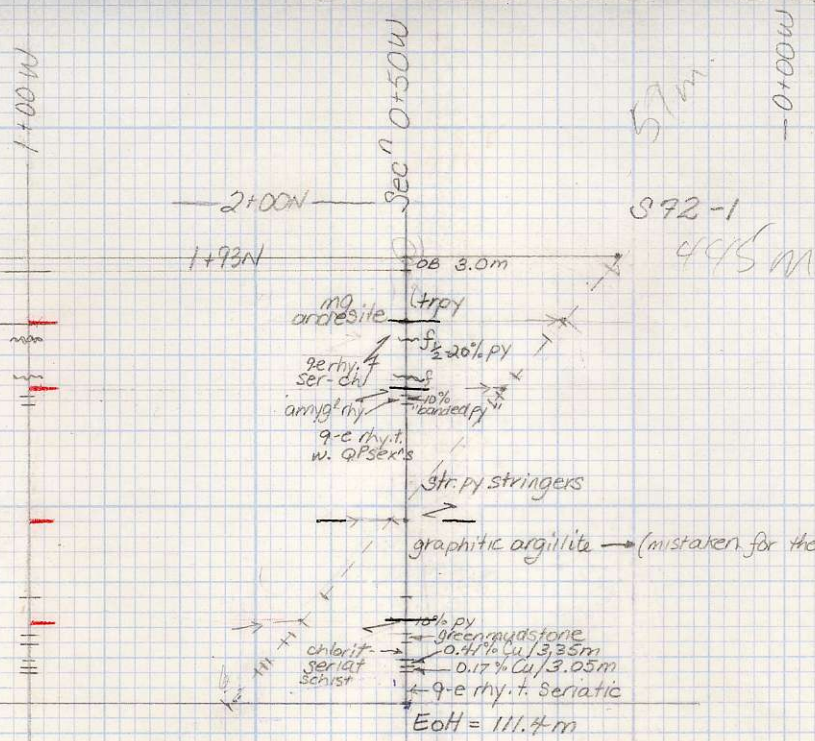 1+00W
Sec'n 0+50W
0+00W
57m.
2+00N
S72-1
445 m
1+93N
OB 3.0m
mg
andesite
(tr py
f
½-20% py
q-e rhy. t
ser-chl
f
amyg'l rhy
10%
"banded py"
q-e rhy. t.
w. QPsex'ns
str. py stringers
graphitic argillite → (mistaken for the
10% py
green mudstone
chlorit-
seriat
schist
0.41% Cu/3.35m
0.17% Cu/3.05m
q-e rhy. t. Seriatic
EoH = 111.4m